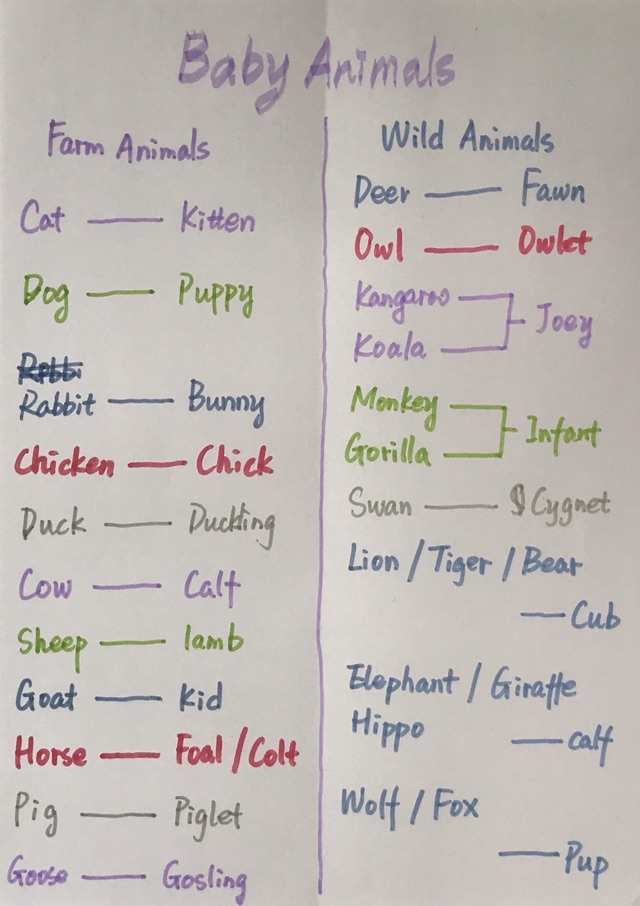 Baby Animals
Farm Animals
Cat — Kitten
Dog — Puppy
Rabbit — Bunny
Chicken — Chick
Duck — Duckling
Cow — Calf
Sheep — lamb
Goat — Kid
Horse — Foal / Colt
Pig — Piglet
Goose — Gosling
Wild Animals
Deer — Fawn
Owl — Owlet
Kangaroo
Koala — Joey
Monkey
Gorilla — Infant
Swan — Cygnet
Lion / Tiger / Bear
— Cub
Elephant / Giraffe
Hippo — calf
Wolf / Fox
— Pup